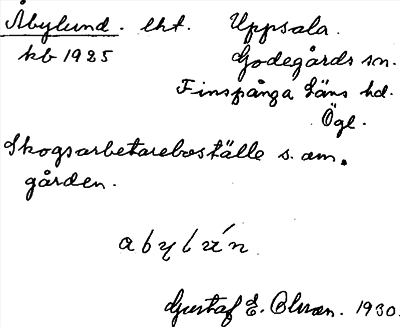 Åbylund. lht. Uppsala.
kb 1925 Godegårds sn.
Finspånga Läns hd.
Ögl.
Skogsarbetareboställe s. om.
gården.
abylún
Gustaf E. Olsson. 1930.